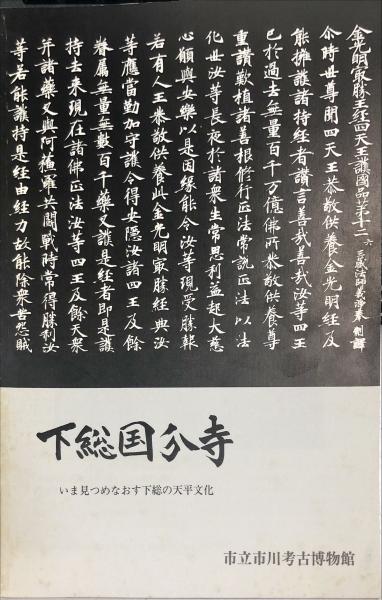 金光明最勝王經四天王護國品第十二 六 三藏法師義淨奉 制譯
尒時世尊聞四天王恭敬供養金光明經及
能擁護諸持經者讃言善哉善哉汝等四王
已於過去無量百千万億佛所恭敬供養尊
重讃歎植諸善根修行正法常說正法以法
化世汝等長夜於諸衆生常思利益起大慈
心願與安樂以是因縁能令汝等現受勝報
若有人王恭敬供養此金光明最勝經典汝
等應當勤加守護令得安隱汝諸四王及餘
眷屬無量無數百千藥叉護是經者即是護
持去来現在諸佛正法汝等四王及餘天衆
并諸藥叉與阿穌羅共闘戰時常得勝利汝
等若能護持是經由經力故能除衆苦怨賊
下総国分寺
いま見つめなおす下総の天平文化
市立市川考古博物館